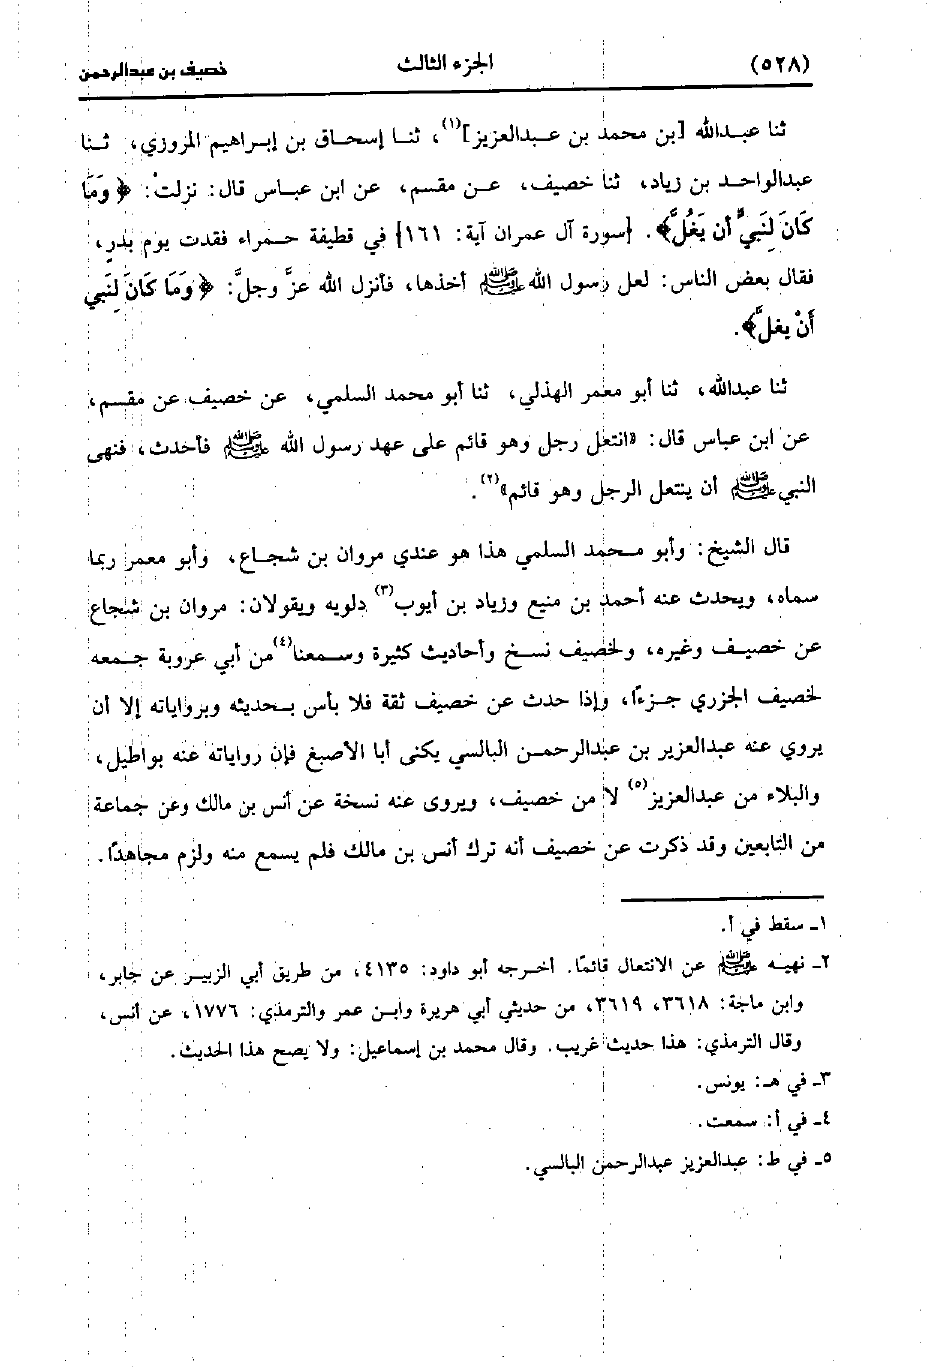 (٥٢٨) الجزء الثالث خصيف بن عبدالرحمن
ثنا عبدالله [بن محمد بن عبدالعزيز](١)، ثنا إسحاق بن إبراهيم المروزي، ثنا
عبدالواحد بن زياد، ثنا خصيف، عن مقسم، عن ابن عباس قال: نزلت: ﴿وَمَا
كَانَ لِنَبِيٍّ أَن يَغُلَّ﴾. {سورة آل عمران آية: ١٦١} في قطيفة حمراء فقدت يوم بدرٍ،
فقال بعض الناس: لعل رسول الله ﷺ أخذها، فأنزل الله عزَّ وجلَّ: ﴿وَمَا كَانَ لِنَبِي
أَنْ يغلَّ﴾.
ثنا عبدالله، ثنا أبو معمر الهذلي، ثنا أبو محمد السلمي، عن خصيف عن مقسم،
عن ابن عباس قال: «انتعل رجل وهو قائم على عهد رسول الله ﷺ فأحدث، فنهى
النبي ﷺ أن ينتعل الرجل وهو قائم»(٢).
قال الشيخ: وأبو محمد السلمي هذا هو عندي مروان بن شجاع، وأبو معمر ربما
سماه، ويحدث عنه أحمد بن منيع وزياد بن أيوب(٣) دلويه ويقولان: مروان بن شجاع
عن خصيف وغيره، ولخصيف نسخ وأحاديث كثيرة وسمعنا(٤) من أبي عروبة جمعه
لخصيف الجزري جزءًا، وإذا حدث عن خصيف ثقة فلا بأس بحديثه وبرواياته إلا أن
يروي عنه عبدالعزيز بن عبدالرحمن البالسي يكنى أبا الأصبغ فإن رواياته عنه بواطيل،
والبلاء من عبدالعزيز(٥) لا من خصيف، ويروى عنه نسخة عن أنس بن مالك وعن جماعة
من التابعين وقد ذكرت عن خصيف أنه ترك أنس بن مالك فلم يسمع منه ولزم مجاهدًا.
١ـ سقط في أ.
٢ـ نهيه ﷺ عن الانتعال قائمًا. أخرجه أبو داود: ٤١٣٥، من طريق أبي الزبير عن جابر،
وابن ماجة: ٣٦١٨، ٣٦١٩، من حديثي أبي هريرة وابن عمر والترمذي: ١٧٧٦، عن أنس،
وقال الترمذي: هذا حديث غريب. وقال محمد بن إسماعيل: ولا يصح هذا الحديث.
٣ـ في هـ: يونس.
٤ـ في أ: سمعت.
٥ـ في ط: عبدالعزيز عبدالرحمن البالسي.